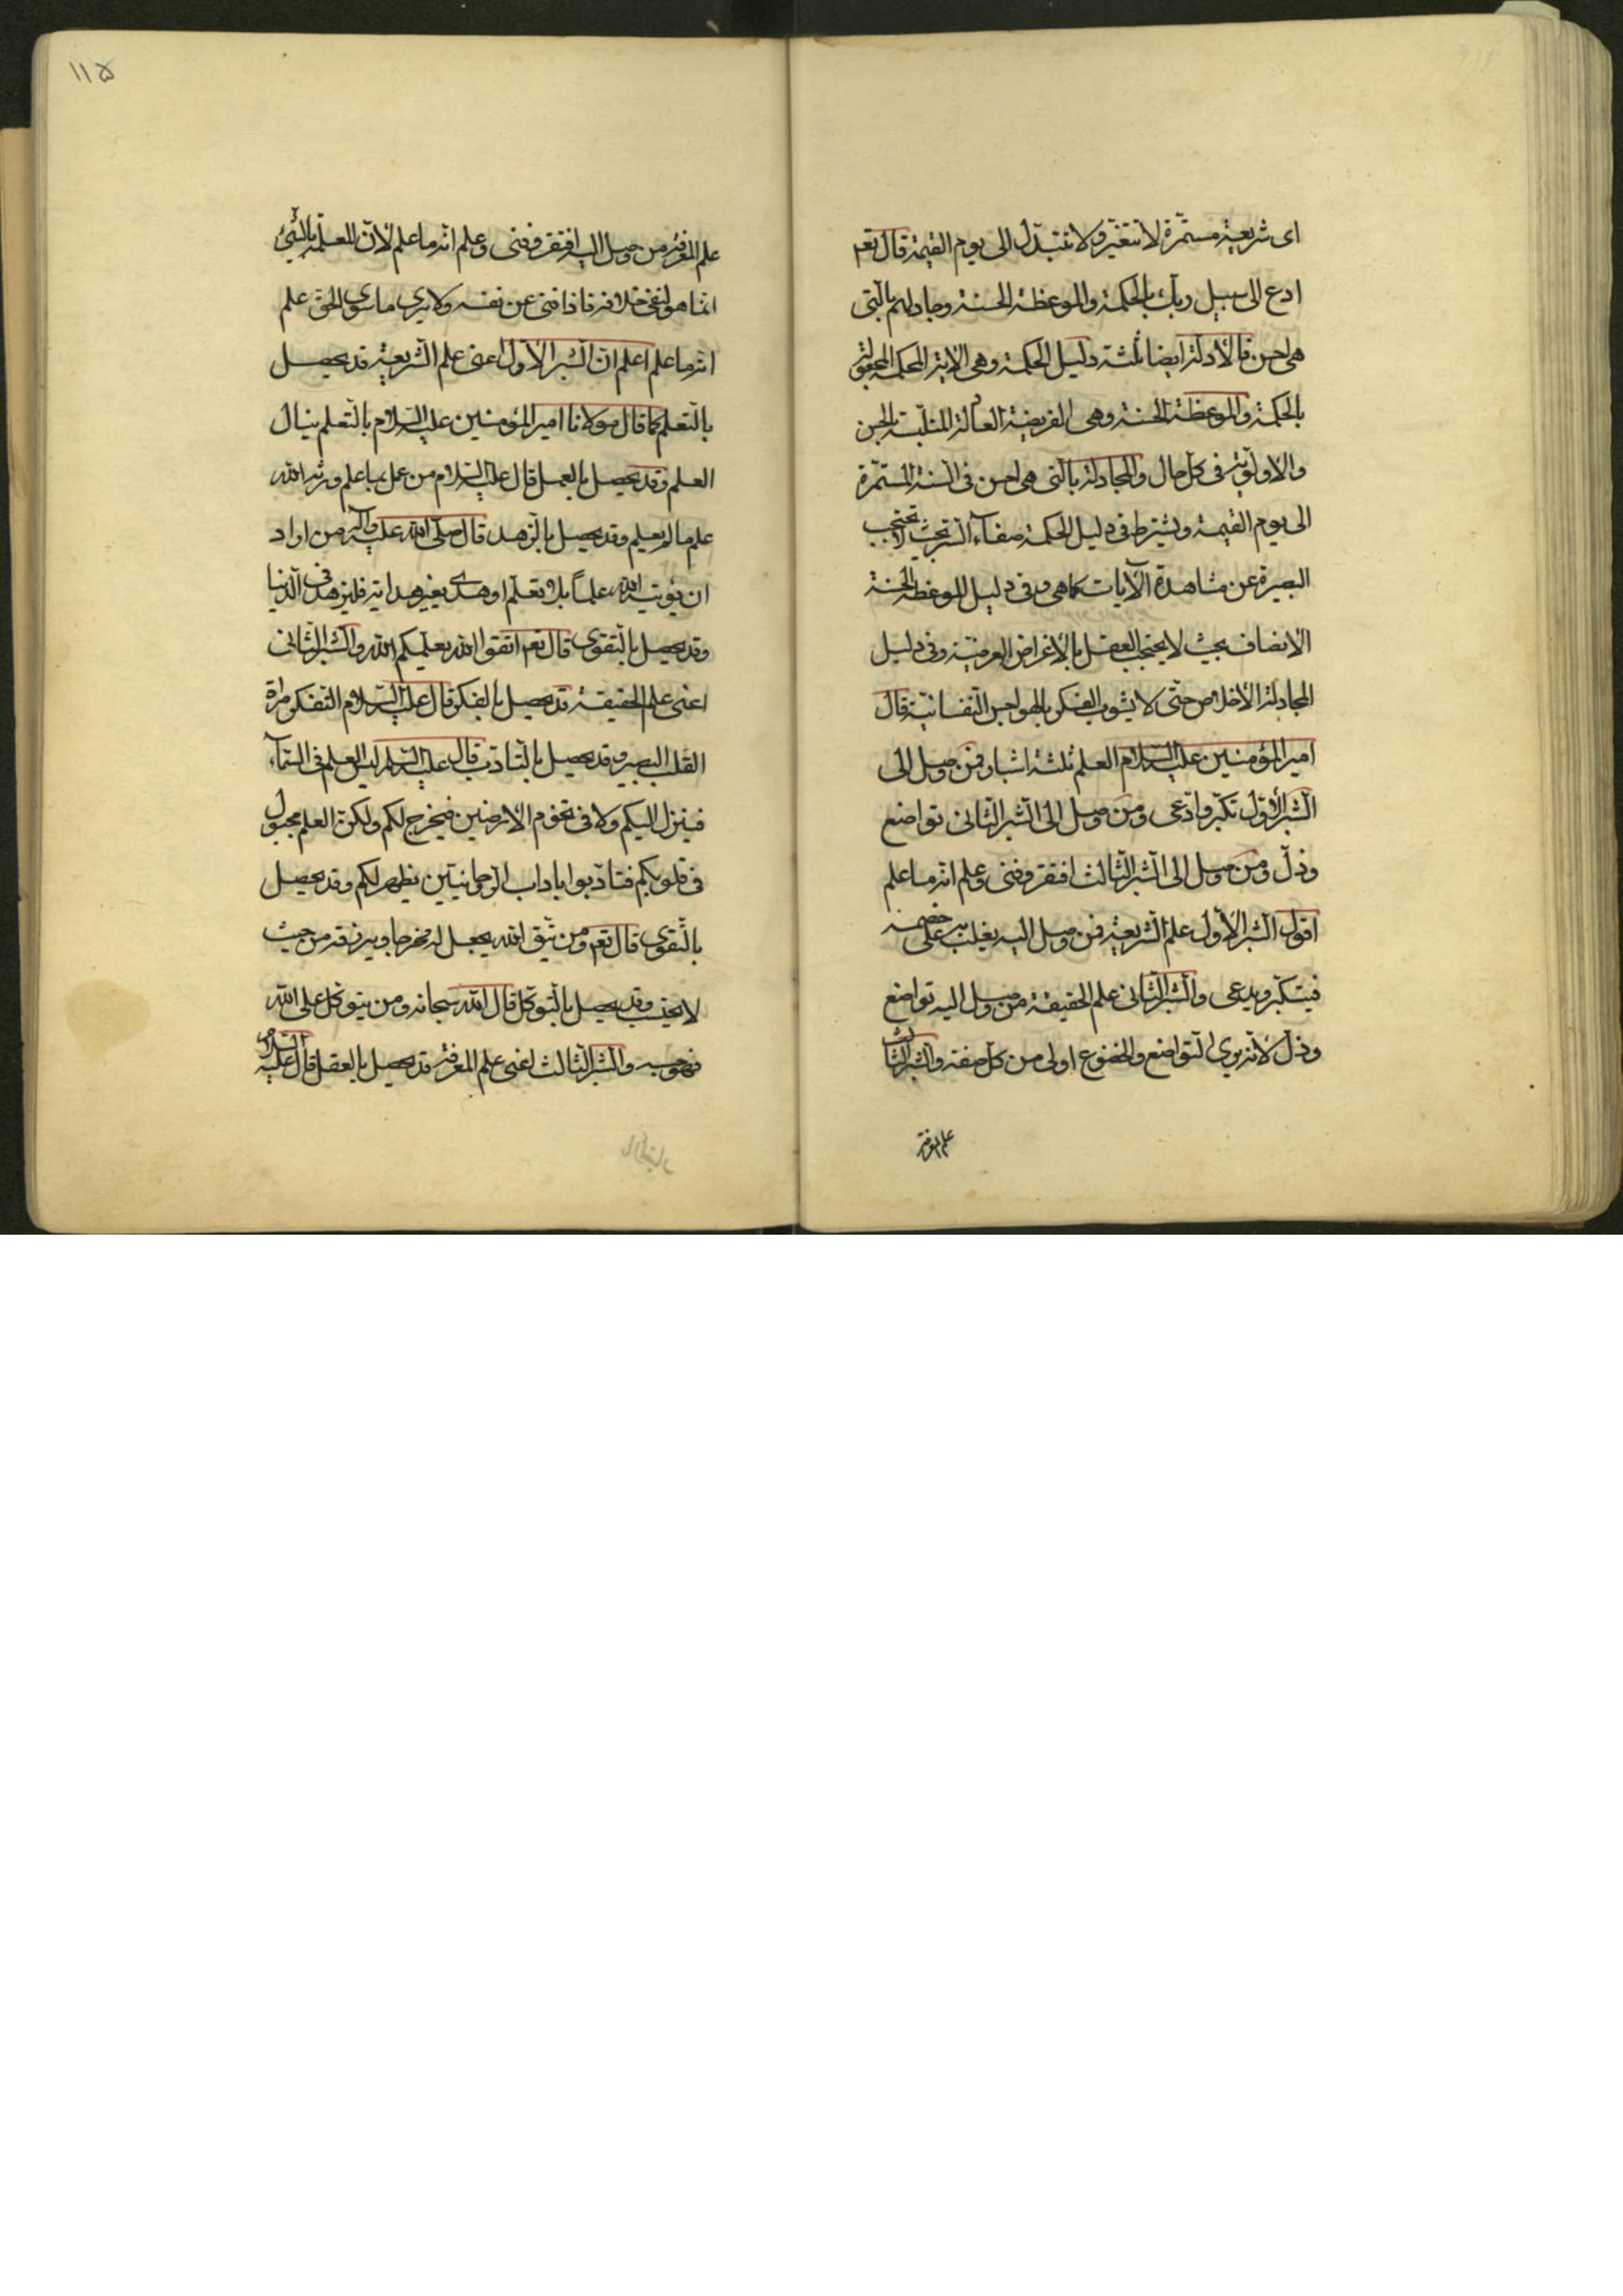 ای شریعیة مستمّرة لا تتغیّر و لا تتبدّل الی یوم القیمة قال تعم
ادع الی سبیل ربّك بالحکمة والموعظة الحسنة وجادلهم بالّتی
هی احسن فالأدلّة ایضا ثلثة دلیل الحکمة وهی الایة المحکمة المحقّقة
بالحکمة والموعظة الحسنة وهی الفریضة العادلة المتلبّسة بالحسن
والاولویّة فی کلّ حال والمجادلة بالّتی هی احسن فی السّنة المستمّرة
الی یوم القیمة ویشترط فی دلیل الحکمة صفاء السّر بحیث لا تحتجب
البصیرة عن مشاهدة الآیات کماهی وفی دلیل الموعظة الحسنة
الانصاف بحیث لا یحتجب العقل بالأغراض العرضیّة وفی دلیل
المجادلة الأخلاص حتّی لا یشوب الفکر بالهواجس النّفسانیّة قال
امیر المؤمنین علیه السّلام العلم ثلثة اشبار فمن وصل الی
الشّبر الأوّل تکبّر وادّعی ومن وصل الی الشّبر الثّانی تواضع
وذلّ ومن وصل الی الشّبر الثّالث افتقر وفنی وعلم انّه ما علم
اقول الشّبر الأوّل علم الشّریعیة فمن وصل الیه یغلب به علی خصمه
فیتکبّر ویدعی والشّبر الثّانی علم الحقیقة من وصل الیه تواضع
وذلّ لأنّه یری التّواضع والخضوع اولی من کلّ صفة والشّبر الثّالث
علم المعرفة
١١۵
علم المعرفة من وصل الیه افتقر وفنی وعلم انّه ما علم لأنّ العلم بالشّیء
انّما هو لنفی خلافه فاذا فنی عن نفسه ولا یری ما سوی الحقّ علم
انّه ما علم اعلم انّ الشّبر الأوّل اعنی علم الشّریعیة قد یحصل
بالتّعلم کما قال مولانا امیر المؤمنین علیه السّلام بالتّعلم ینال
العلم وقد یحصل بالعمل قال علیه السّلام من عمل بما علم ورثه الله
علم ما لم یعلم وقد یحصل بالزّهد قال صلّی الله علیه وآله من اراد
ان یؤتیه الله علماً بلا تعلّم او هدی بغیر هدایة فلیزهد فی الدّنیا
وقد یحصل بالتّقوی قال تعم اتّقوا الله یعلّمکم الله والشّبر الثّانی
اعنی علم الحقیقة قد یحصل بالفکر قال علیه السّلام التّفکر مرآة
القلب البصیر وقد یحصل بالتّادّب قال علیه السّلام لیس العلم فی السّماء
فینزل الیکم ولا فی تخوم الارضین فیخرج لکم ولکنّ العلم مجبول
فی قلوبکم فتادّبوا باداب الرّوحانیّین یظهر لکم وقد یحصل
بالتّقوی قال تعم ومن یتّق الله یجعل له مخرجا ویرزقه من حیث
لا یحتسب وقد یحصل بالتّوکّل قال الله سبحانه ومن یتوکّل علی الله
فهو حسبه والشّبر الثّالث اعنی علم المعرفة قد یحصل بالعقل قال علیه السّلام